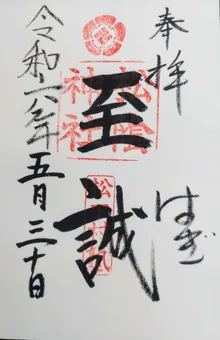 奉拝
はぎ
松陰
神社
至誠
松下村塾
令和六年五月三十日